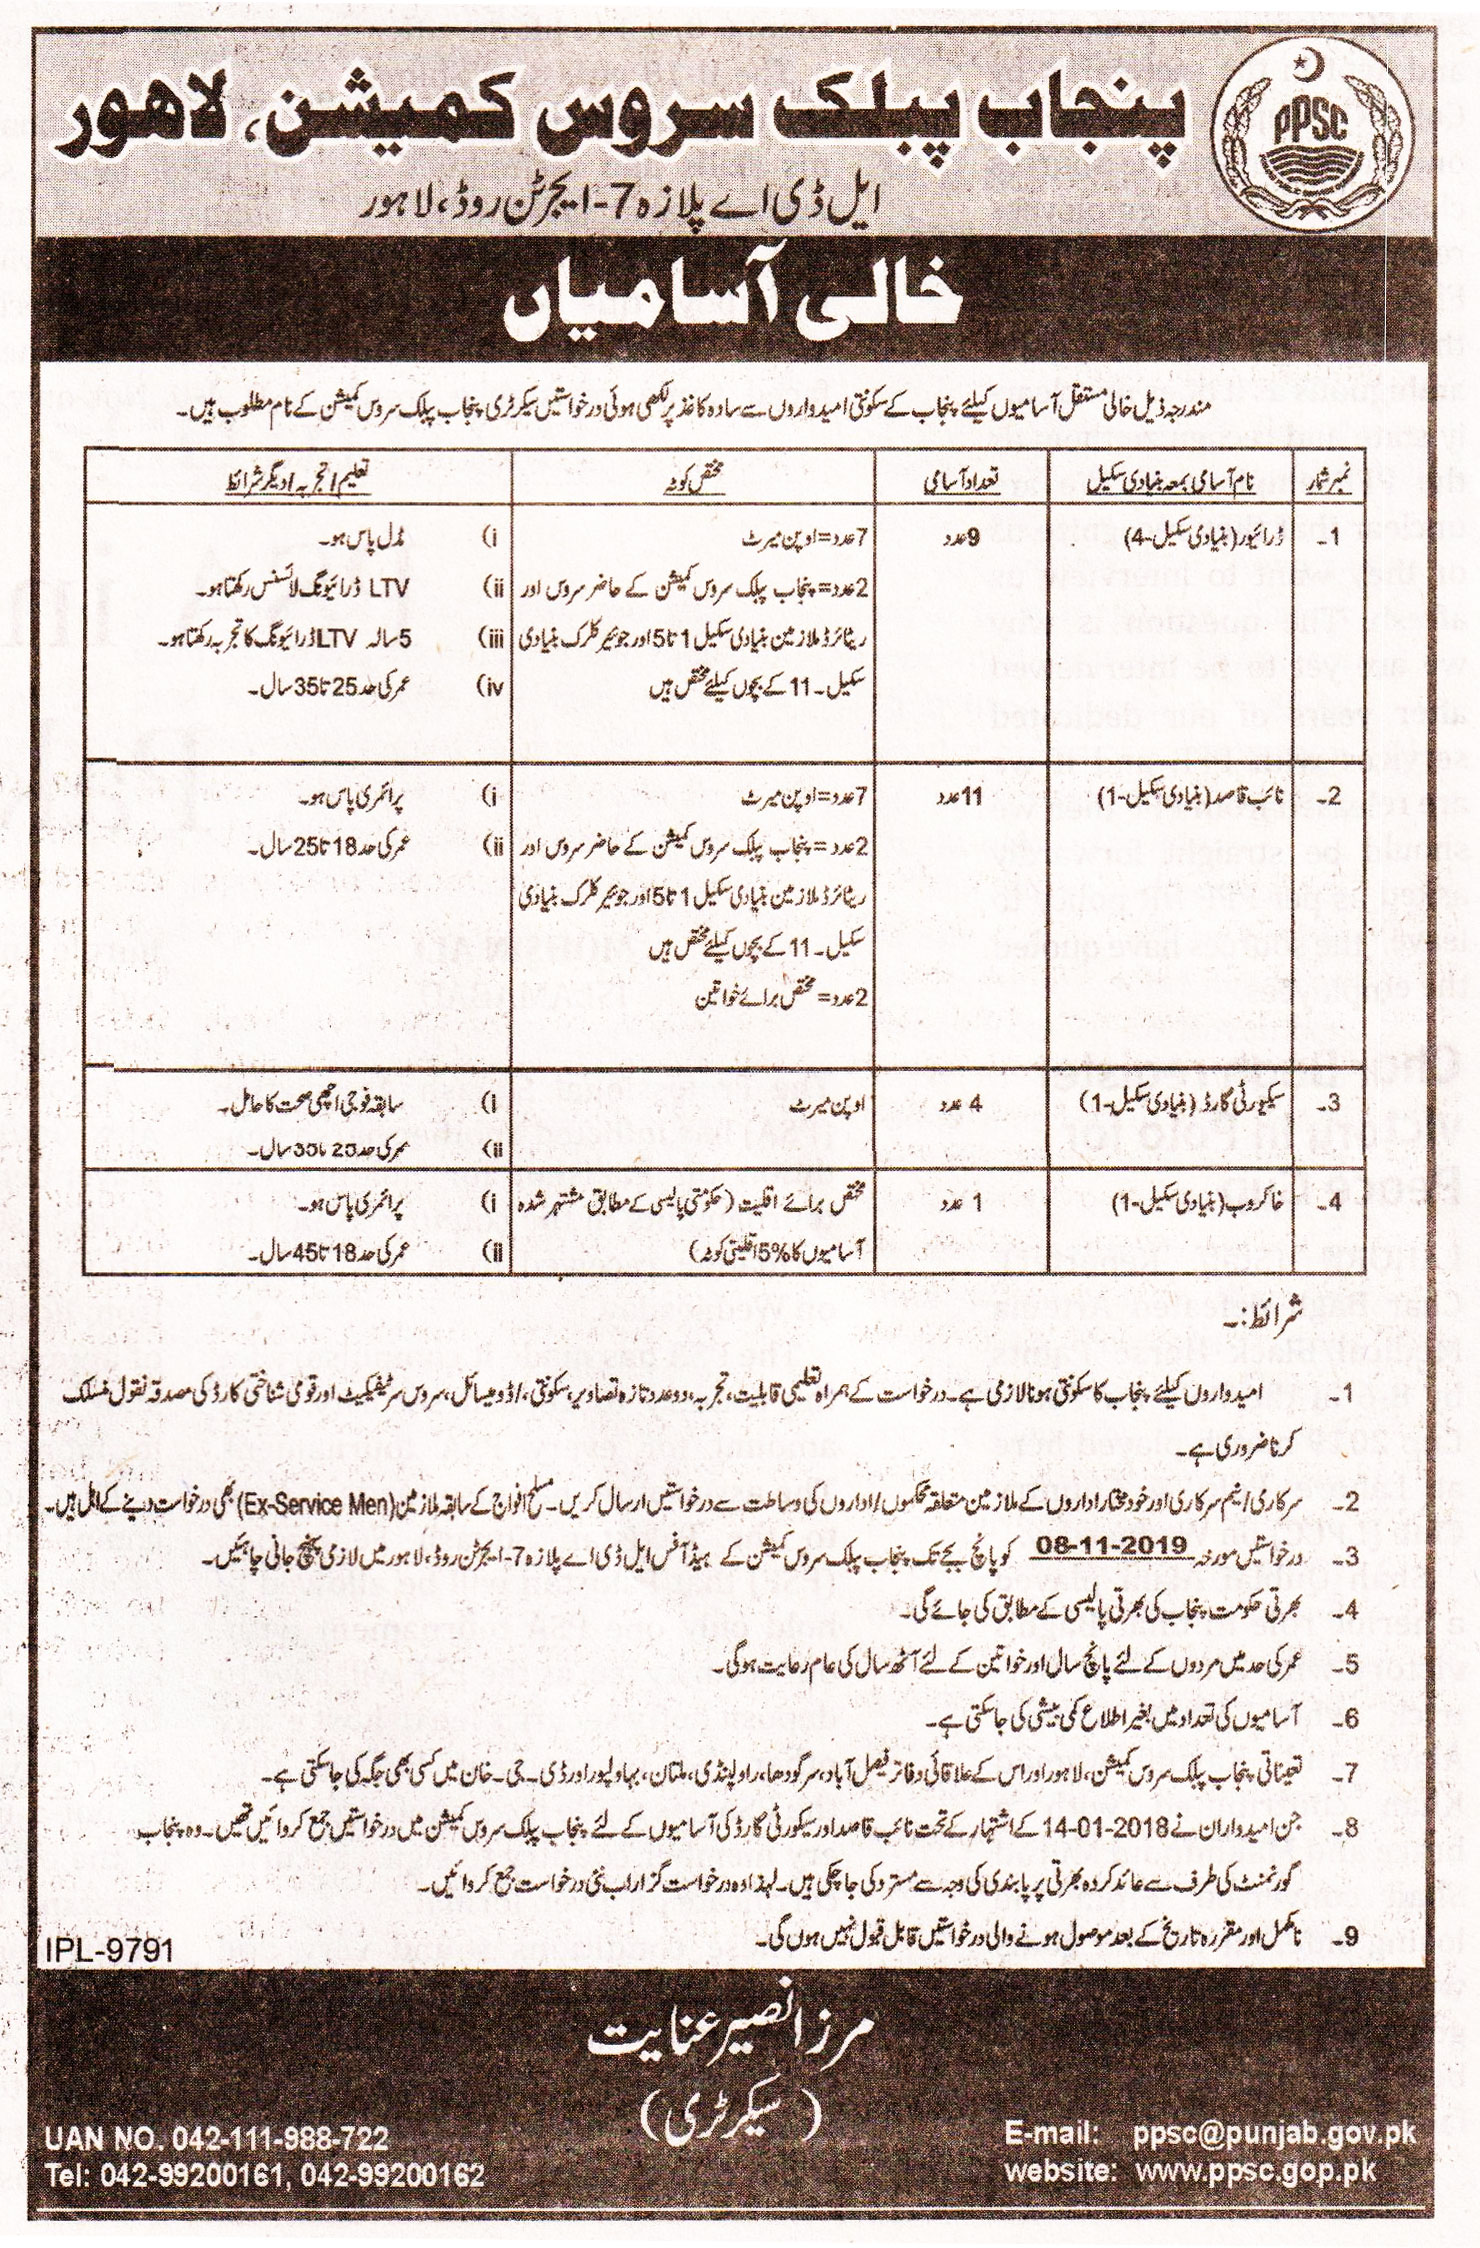 پنجاب پبلک سروس کمیشن، لاہور
PPSC
ایل ڈی اے پلازہ 7-ایجرٹن روڈ، لاہور
خالی آسامیاں
مندرجہ ذیل خالی مستقل آسامیوں کیلئے پنجاب کے سکونتی امیدواروں سے سادہ کاغذ پر لکھی ہوئی درخواستیں سیکرٹری پنجاب پبلک سروس کمیشن کے نام مطلوب ہیں۔
نمبر شمار نام آسامی بمعہ بنیادی سکیل تعداد آسامی مختص کوٹہ تعلیم/تجربہ/دیگر شرائط
1۔ ڈرائیور (بنیادی سکیل-4) 9عدد 7عدد=اوپن میرٹ (i مڈل پاس ہو۔
2عدد=پنجاب پبلک سروس کمیشن کے حاضر سروس اور (ii LTV ڈرائیونگ لائسنس رکھتا ہو۔
ریٹائرڈ ملازمین بنیادی سکیل 1 تا 5 اور جونیئر کلرک بنیادی (iii 5 سالہ LTV ڈرائیونگ کا تجربہ رکھتا ہو۔
سکیل۔11 کے بچوں کیلئے مختص ہیں (iv عمر کی حد 25 تا 35 سال۔
2۔ نائب قاصد (بنیادی سکیل-1) 11عدد 7عدد=اوپن میرٹ (i پرائمری پاس ہو۔
2عدد=پنجاب پبلک سروس کمیشن کے حاضر سروس اور (ii عمر کی حد 18 تا 25 سال۔
ریٹائرڈ ملازمین بنیادی سکیل 1 تا 5 اور جونیئر کلرک بنیادی
سکیل۔11 کے بچوں کیلئے مختص ہیں
2عدد= مختص برائے خواتین
3۔ سیکیورٹی گارڈ (بنیادی سکیل-1) 4 عدد اوپن میرٹ (i سابقہ فوجی اچھی صحت کا حامل۔
(ii عمر کی حد تا سال۔
4۔ خاکروب (بنیادی سکیل-1) 1 عدد مختص برائے اقلیت (حکومتی پالیسی کے مطابق مشتہر شدہ (i پرائمری پاس ہو۔
آسامیوں کا 5% اقلیتی کوٹہ) (ii عمر کی حد 18 تا 45 سال۔
شرائط:۔
1۔ امیدواروں کیلئے پنجاب کا سکونتی ہونا لازمی ہے۔ درخواست کے ہمراہ تعلیمی قابلیت، تجربہ، دو عدد تازہ تصاویر، سکونتی،/ڈومیسائل، سروس سرٹیفکیٹ اور قومی شناختی کارڈ کی مصدقہ نقول منسلک
کرنا ضروری ہے۔
2۔ سرکاری/نیم سرکاری اور خود مختار اداروں کے ملازمین متعلقہ محکموں/اداروں کی وساطت سے درخواستیں ارسال کریں۔ مسلح افواج کے سابقہ ملازمین (Ex-Service Men) بھی درخواست دینے کے اہل ہیں۔
3۔ درخواستیں مورخہ 08-11-2019 کو پانچ بجے تک پنجاب پبلک سروس کمیشن کے ہیڈ آفس ایل ڈی اے پلازہ 7-ایجرٹن روڈ، لاہور میں لازمی پہنچ جانی چاہئیں۔
4۔ بھرتی حکومت پنجاب کی بھرتی پالیسی کے مطابق کی جائے گی۔
5۔ عمر کی حد میں مردوں کے لئے پانچ سال اور خواتین کے لئے آٹھ سال کی عام رعایت ہوگی۔
6۔ آسامیوں کی تعداد میں بغیر اطلاع کمی بیشی کی جاسکتی ہے۔
7۔ تعیناتی پنجاب پبلک سروس کمیشن، لاہور اور اس کے علاقائی دفاتر فیصل آباد، سرگودھا، راولپنڈی، ملتان، بہاولپور اور ڈی۔جی۔خان میں کسی بھی جگہ کی جاسکتی ہے۔
8۔ جن امیدواران نے 14-01-2018 کے اشتہار کے تحت نائب قاصد اور سیکورٹی گارڈ کی آسامیوں کے لئے پنجاب پبلک سروس کمیشن میں درخواستیں جمع کروائیں تھیں۔ وہ پنجاب
گورنمنٹ کی طرف سے عائد کردہ بھرتی پر پابندی کی وجہ سے مسترد کی جاچکی ہیں۔ لہذا وہ درخواست گزار اب نئی درخواست جمع کروائیں۔
9۔ نامکمل اور مقررہ تاریخ کے بعد موصول ہونے والی درخواستیں قابل قبول نہیں ہوں گی۔
IPL-9791
مرزا نصیر عنایت
(سیکرٹری)
UAN NO. 042-111-988-722
Tel: 042-99200161, 042-99200162
E-mail: ppsc@punjab.gov.pk
website: www.ppsc.gop.pk